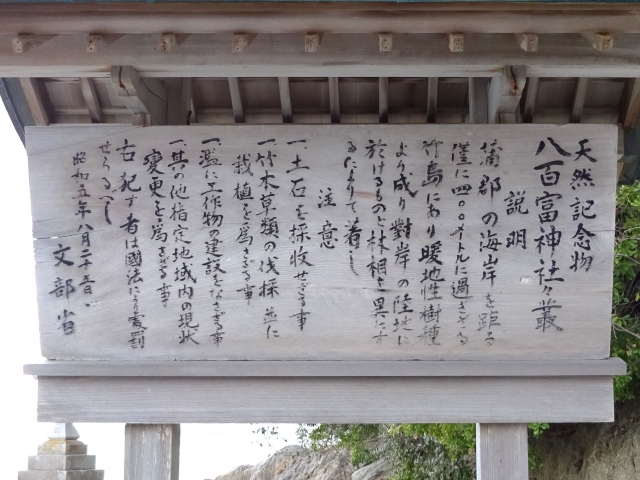 天然記念物
八百富神社々叢
説明
蒲郡の海岸を距る
僅に四〇〇メートルに過ぎざる
竹島にあり暖地性樹種
より成り對岸の陸地に
於けるものと林相を異にす
るによりて著し
注意
一、土石を採收せざる事
一、竹木草類の伐採並に
栽植を為さざる事
一、濫に工作物の建設をなさざる事
一、其の他指定地域内の現状
変更を為さざる事
右記す者は國法により處罰
せらるべし
昭和五年八月二十五日
文部省